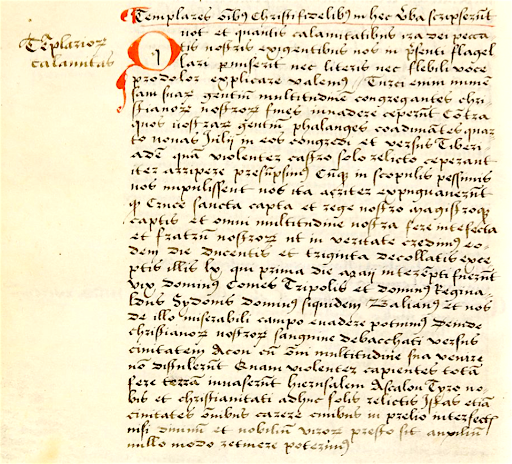 Tēplarioꝝ
calamitas
Templares oībꝰ Christi fidelibꝰ in hec v̄ba scripserūt
Quot et quantis calamitatibus ira dei pecca
tis nostris exigentibus nos in p̄senti flagel
lari pmiserit nec literis nec flebili voce
prodolor explicare valemꝰ Turci enim inmē
sam suaꝝ gentiū multitudinē congregantes chri
stianoꝝ nostroꝝ fines inuadere ceperūt Cōtra
quos nostraꝝ gentiū phalanges coadunātes quar
to nonas Iulij in eos congredi et versus Tiberi
adē quā violenter castro solo relicto ceperant
iter arripere presūpsimꝰ Cūqꝫ in scopulis pessimis
nos inpulissent nos ita acriter expugnauerūt
qꝫ Cruce sancta capta et rege nostro magistroqꝫ
captis et omni multitudine nostra fere intefecta
et fratrū nostroꝝ ut in veritate credimꝰ eo-
dem die ducentis et triginta decollatis exce
ptis illis lx qui prima die maij interēpti fuerūt
vix dominꝰ Comes Tripolis et dominꝰ Regina
ldus Sydonis dominꝰ siquidem Balianꝰ et nos
de illo miserabili campo euadere potuimꝰ Deinde
christianoꝝ nostroꝝ sanguine debacchati versus
ciuitatem Acon cū oīni multitudine sua venire
nō distulerūt Quam violenter capientes totā
fere terrā inuaserūt hierusalem Ascalon Tyro no
bis et christianitati adhuc solis relictis Istas etiā
ciuitates oībus carere ciuibus in prelio intersectis
nisi diuinū et nobiliū viroꝝ presto sit auxiliū
nullo modo retinere poterimꝰ